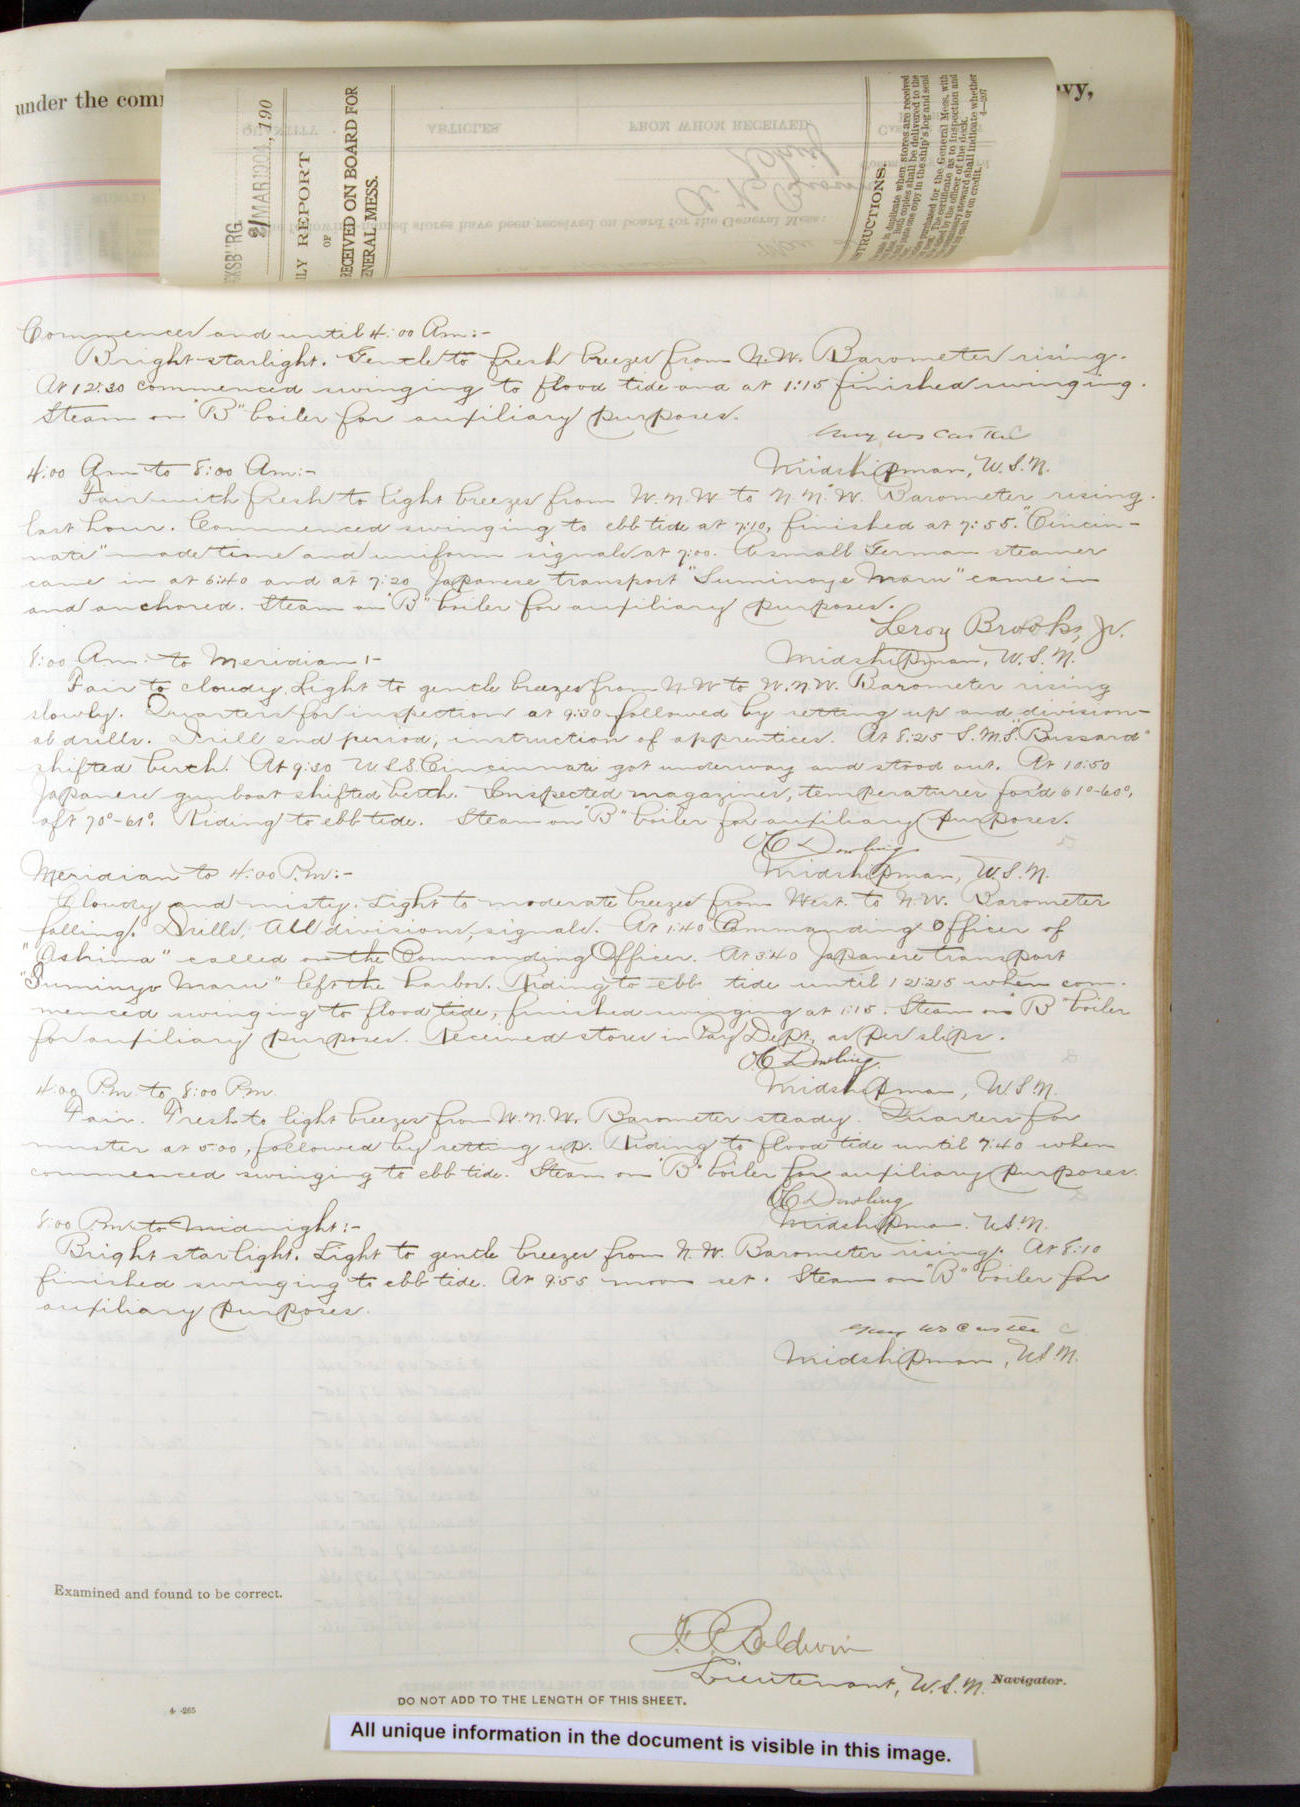 under the com
avy,
VICKSBURG
21 MAR 1904, 190
LY REPORT
OF
RECEIVED ON BOARD FOR
GENERAL MESS.
STRUCTIONS.
Commences and until 4:00 Am:-
Bright starlight. Gentle to fresh breezes from N.W. Barometer rising.
At 12:30 commenced swinging to flood tide and at 1:15 finished swinging.
Steam on "B" boiler for auxiliary purposes.
Guy W S Castle
Midshipman, U.S.N.
4:00 Am to 8:00 Am:-
Fair with fresh to light breezes from W.N.W to N.N.W. Barometer rising
last hour. Commenced swinging to ebb tide at 7:10, finished at 7:55. "Cincin-
nati" made time and uniform signals at 7:00. A small German steamer
came in at 6:40 and at 7:20 Japanese transport "Suminoye Maru" came in
and anchored. Steam on "B" boiler for auxiliary purposes.
Leroy Brooks, Jr.
Midshipman, U.S.N.
8:00 Am: to Meridian:-
Fair to cloudy. Light to gentle breezes from N.W to W.N.W. Barometer rising
slowly. Quarters for inspection at 9:30 followed by setting up and division-
al drills. Drill 2nd period, instruction of apprentices. At 8:25 S.M.S. "Bussard"
shifted berth. At 9:30 U.S.S. Cincinnati got underway and stood out. At 10:50
Japanese gunboat shifted berth. Inspected magazines, temperatures for'd 61°-60°,
aft 70°-61°. Riding to ebb tide. Steam on "B" boiler for auxiliary purposes.
O Dowling
Midshipman, U.S.N.
Meridian to 4:00 P.m:-
Cloudy and misty. Light to moderate breezes from West to N.W. Barometer
falling. Drills, All divisions, signals. At 1:40 Commanding Officer of
"Ashima" called on the Commanding Officer. At 3:40 Japanese transport
"Suminoye Maru" left the harbor. Riding to ebb tide until 12:25 when com-
menced swinging to flood tide, finished swinging at 1:15. Steam on "B" boiler
for auxiliary purposes. Received stores in Pay Dept. as per slips.
O Dowling.
Midshipman, U.S.N.
4:00 P.m. to 8:00 P.m.
Fair. Fresh to light breezes from W.N.W. Barometer steady. Quarters for
muster at 5:00, followed by setting up. Riding to flood tide until 7:40 when
commenced swinging to ebb tide. Steam on "B" boiler for auxiliary purposes.
O Dowling
Midshipman. U.S.N.
8:00 P.m. to Midnight:-
Bright starlight. Light to gentle breezes from N.W. Barometer rising. At 8:10
finished swinging to ebb tide. At 9:55 moon set. Steam on "B" boiler for
auxiliary purposes.
Guy W S Castle
Midshipman, U.S.N.
Examined and found to be correct.
F. P. Baldwin
Lieutenant, U.S.N. Navigator.
DO NOT ADD TO THE LENGTH OF THIS SHEET.
4-265
All unique information in the document is visible in this image.